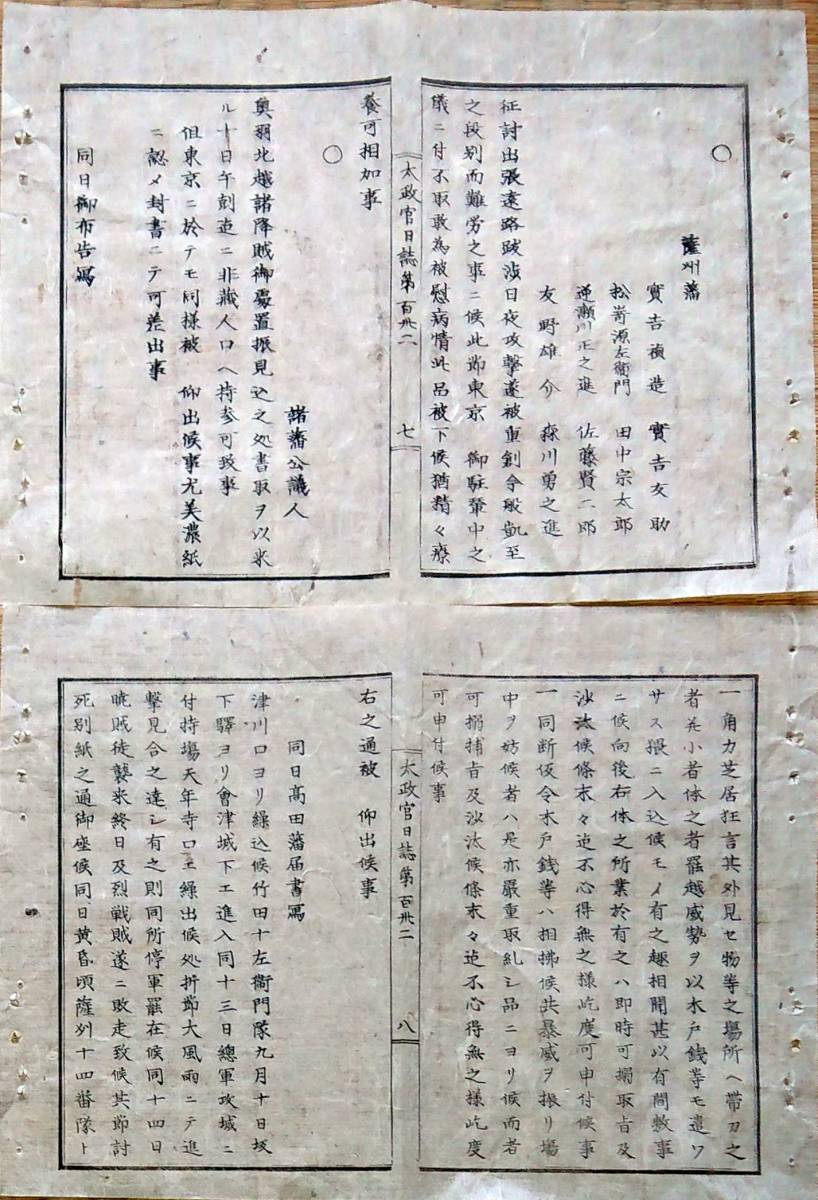 ○
薩州藩
實吉禎造 實吉友助
松嵜源左衛門 田中宗太郎
逆瀬川正之進 佐藤賢二郎
友野雄介 森川勇之進
征討出張遠路跋渉日夜攻撃遂被重創今般凱至
之段別而難労之事ニ候此節東京 御駐輦中之
儀ニ付不取敢為被慰病情此品被下候猶精々療
太政官日誌第百卅二 七
養可相加事
○
諸藩公議人
奥羽北越諸降賊御處置振見込之処書取ヲ以来
ル十日午刻迄ニ非蔵人口ヘ持参可致事
但東京ニ於テモ同様被 仰出候事尤美濃紙
ニ認メ封書ニテ可差出事
同日御布告寫
一角力芝居狂言其外見セ物等之場所ヘ帯刀之
者并小者体之者罷越威勢ヲ以木戸銭等モ遣ワ
サス猥ニ入込候モノ有之趣相聞甚以有間敷事
ニ候向後右体之所業於有之ハ即時可搦取旨及
沙汰候條末々迄不心得無之様屹度可申付候事
一同断仮令木戸銭等ハ相拂候共暴威ヲ振リ場
中ヲ妨候者ハ是亦嚴重取糺シ品ニヨリ候而者
可搦捕旨及沙汰候條末々迄不心得無之様屹度
可申付候事
太政官日誌第百卅二 八
右之通被 仰出候事
同日高田藩届書寫
津川口ヨリ繰込候竹田十左衛門隊九月十日坂
下驛ヨリ會津城下エ進入同十三日總軍攻城ニ
付持場天年寺口エ繰出候処折節大風雨ニテ進
撃見合之達シ有之則同所停軍罷在候同十四日
暁賊徒襲来終日及烈戦賊遂ニ敗走致候其節討
死別紙之通御座候同日黄昏頃薩州十四番隊ト